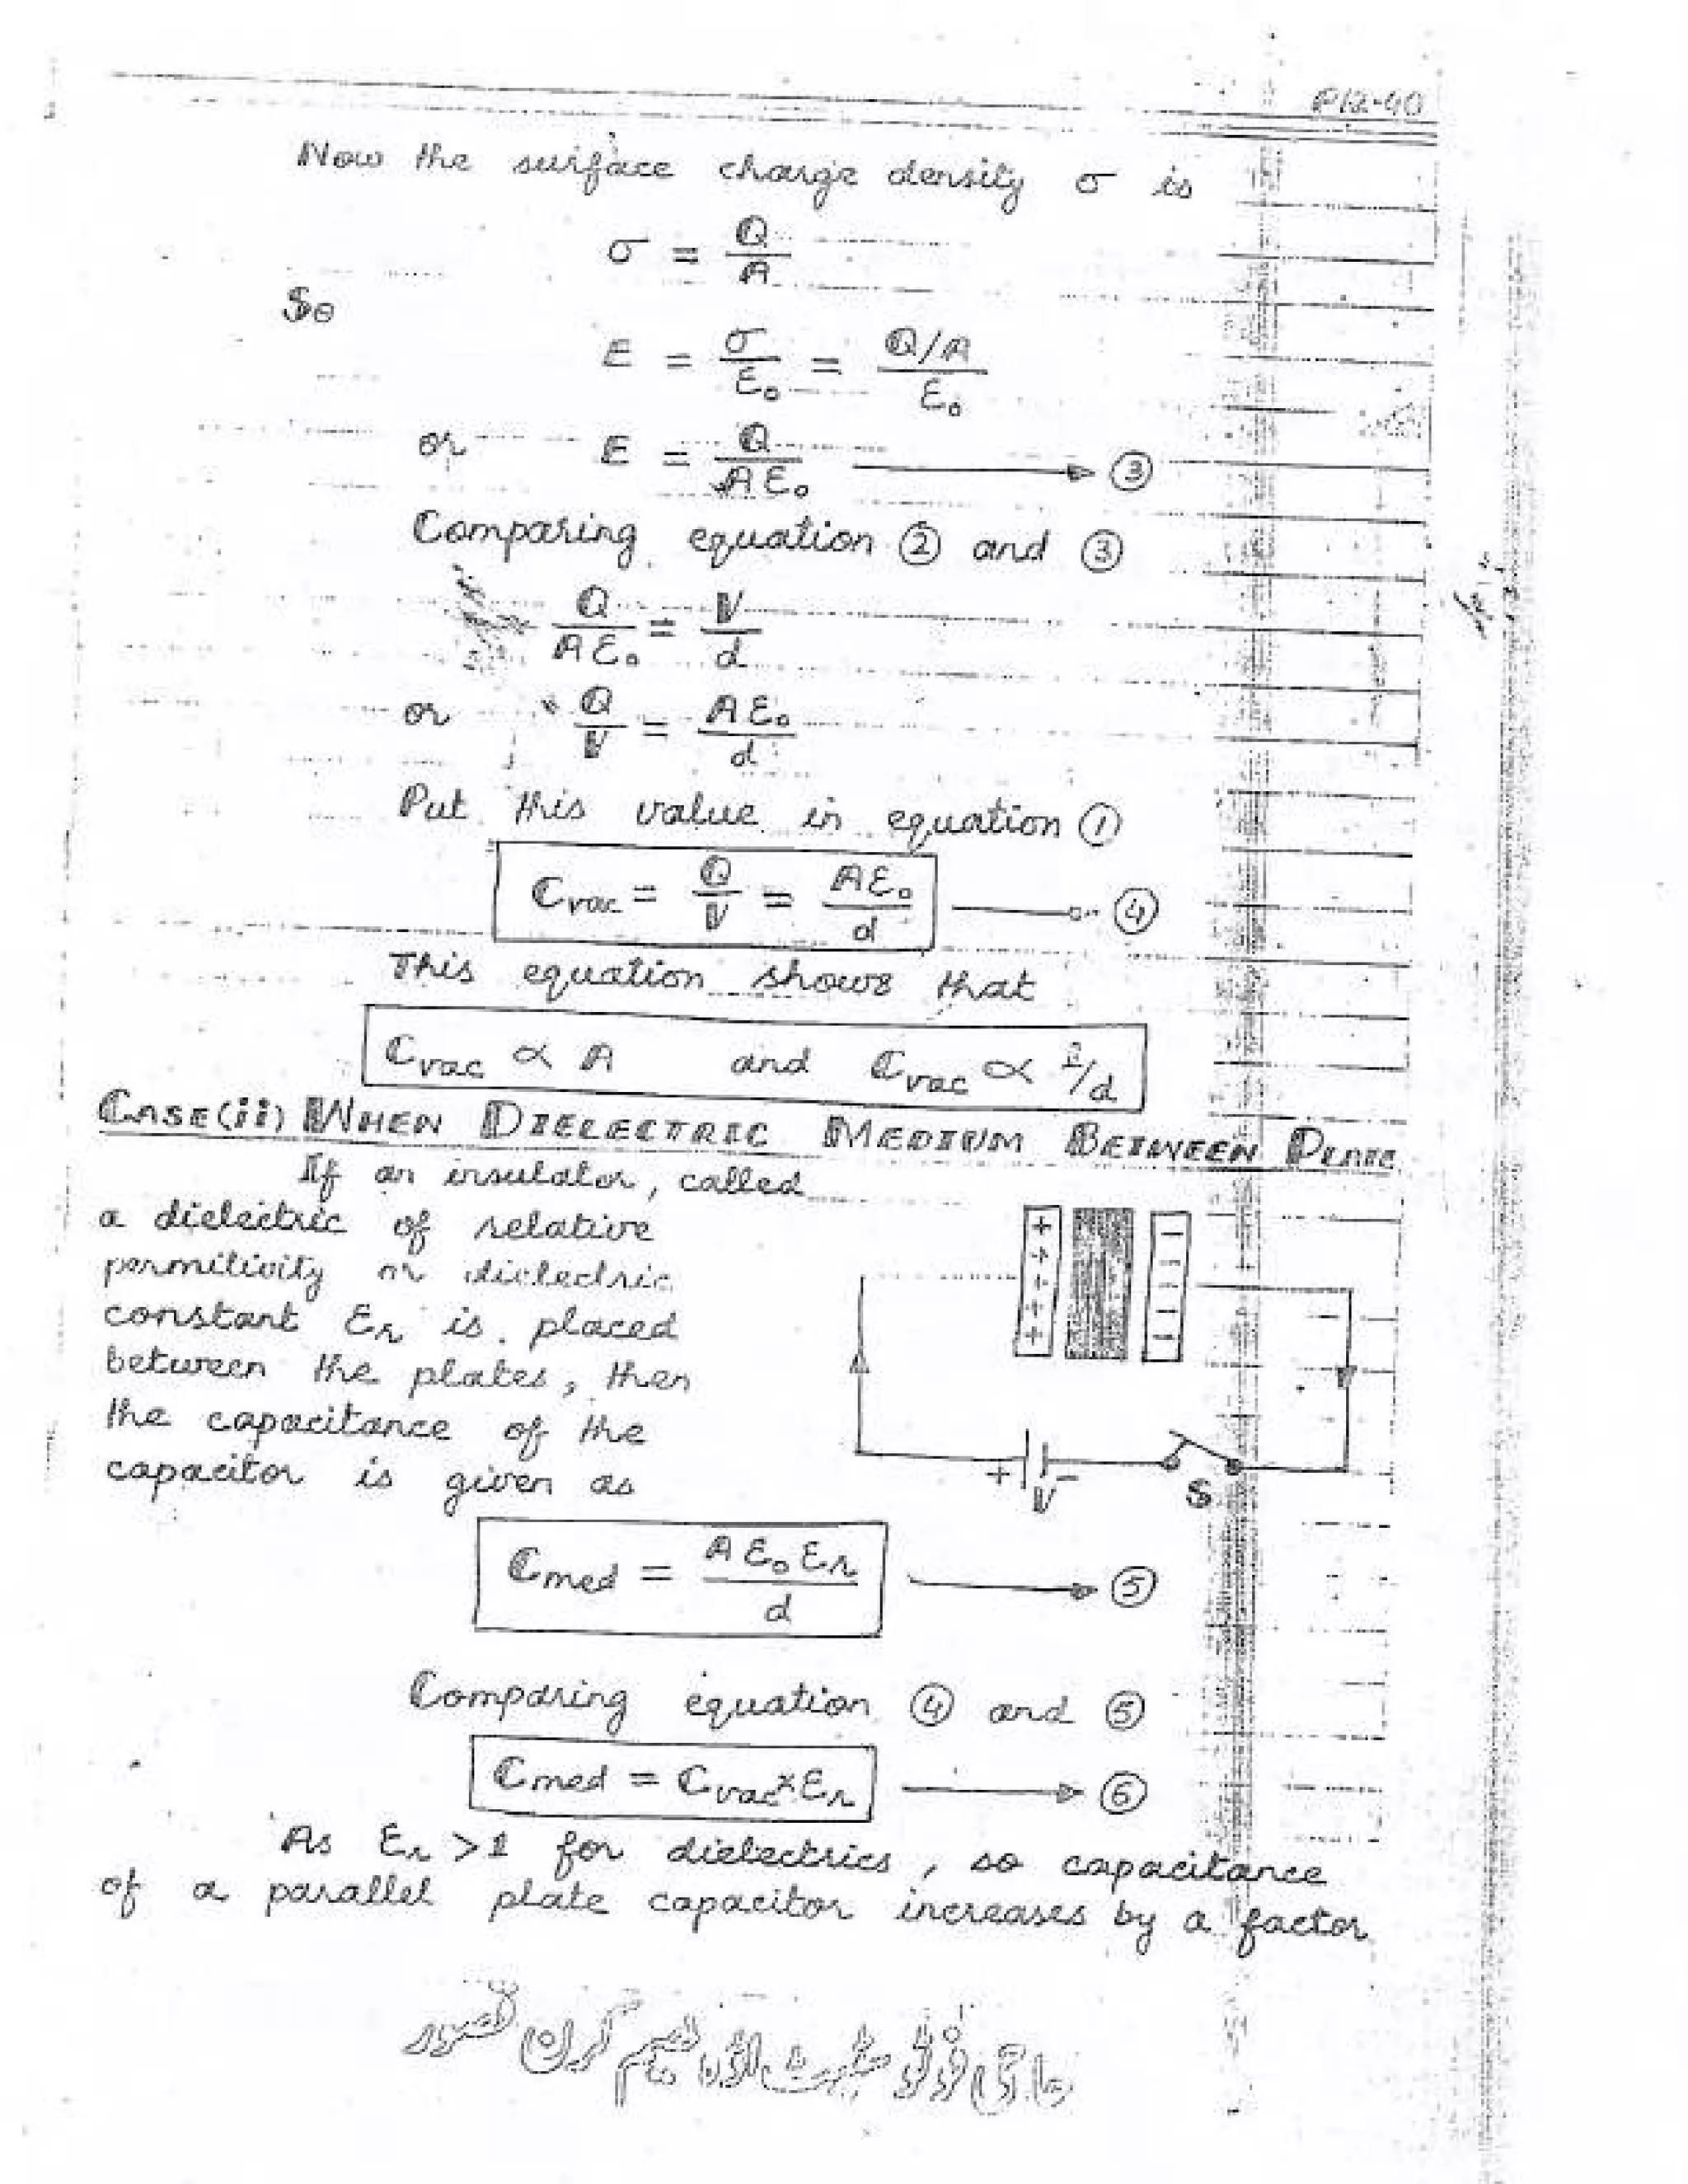 P12-40
Now the surface charge density σ is
σ = Q/A
So
E = σ/ε₀ = Q/A / ε₀
or E = Q/Aε₀ → ③
Comparing equation ② and ③
Q/Aε₀ = V/d
or Q/V = Aε₀/d
Put this value in equation ①
Cvac = Q/V = Aε₀/d → ④
This equation shows that
Cvac ∝ A and Cvac ∝ 1/d
CASE(ii) WHEN DIELECTRIC MEDIUM BETWEEN PLATE
If an insulator, called
a dielectric of relative
permitivity or dielectric
constant εr is placed
between the plates, then
the capacitance of the
capacitor is given as
+ + + + +
− − − − −
+ − V S
Cmed = Aε₀εr/d → ⑤
Comparing equation ④ and ⑤
Cmed = Cvac×εr → ⑥
As εr >1 for dielectrics, so capacitance
of a parallel plate capacitor increases by a factor